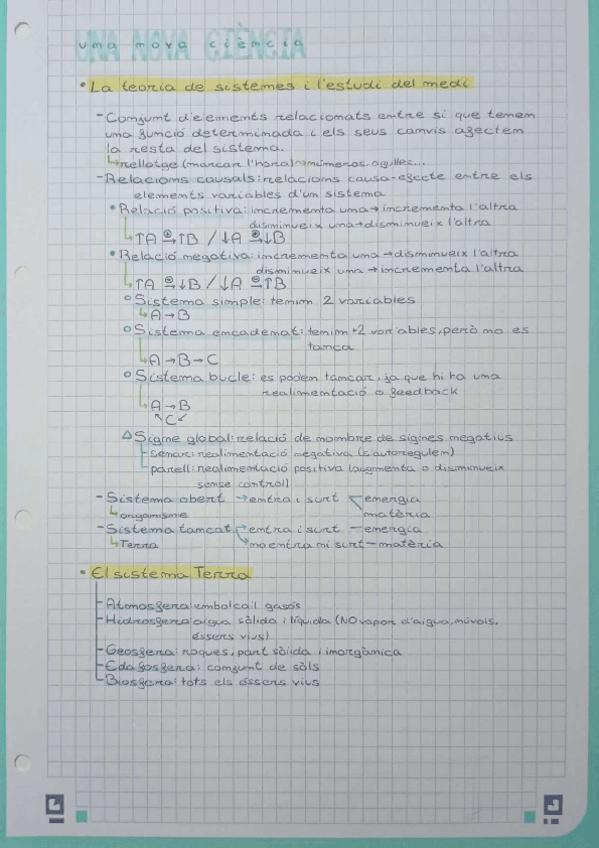 UNA NOVA CIÈNCIA
• La teoria de sistemes i l'estudi del medi
- Conjunt d'elements relacionats entre si que tenen
una funció determinada i els seus canvis afecten
la resta del sistema.
↳ rellotge (marcar l'hora) → números, agulles...
- Relacions causals: relacions causa-efecte entre els
elements variables d'un sistema
• Relació positiva: incrementa una → incrementa l'altra
disminueix una → disminueix l'altra
↳ ↑A ⊕→ ↑B / ↓A ⊕→ ↓B
• Relació negativa: incrementa una → disminueix l'altra
disminueix una → incrementa l'altra
↳ ↑A ⊖→ ↓B / ↓A ⊖→ ↑B
○ Sistema simple: tenim 2 variables
↳ A → B
○ Sistema encadenat: tenim +2 variables, però no es
tanca
↳ A → B → C
○ Sistema bucle: es poden tancar, ja que hi ha una
realimentació o feedback
↳ A → B
↖ C ↙
△ Signe global: relació de nombre de signes negatius
senar: realimentació negativa (s'autoregulen)
parell: realimentació positiva (augmenta o disminueix
sense control)
- Sistema obert → entra i surt energia
↳ organisme matèria
- Sistema tancat entra i surt - energia
↳ Terra no entra ni surt - matèria
• El sistema Terra
Atmosfera: embolcall gasós
Hidrosfera: aigua sòlida i líquida (NO vapor d'aigua, núvols,
éssers vius)
Geosfera: roques, part sòlida i inorgànica
Edafosfera: conjunt de sòls
Biosfera: tots els éssers vius